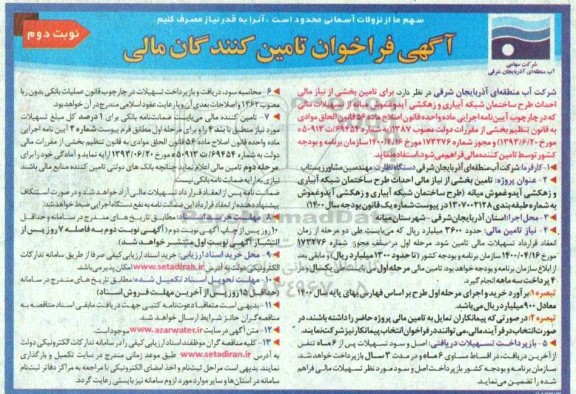 سهم ما از نزولات آسمانی محدود است ، آنرا به قدر نیاز مصرف کنیم .
نوبت دوم
آگهی فراخوان تامین کنندگان مالی
شرکت سهامی
آب منطقه‌ای آذربایجان شرقی
شرکت آب منطقه‌ای آذربایجان شرقی در نظر دارد، برای تامین بخشی از نیاز مالی
احداث طرح ساختمان شبکه آبیاری و زهکشی آیدوغموش میانه از تسهیلات مالی
که در چارچوب آیین‌نامه اجرایی ماده واحده قانون اصلاح ماده ۵۶ قانون الحاق موادی
به قانون تنظیم بخشی از مقررات دولت مصوب ۱۳۸۷
مورخ ۱۳۹۳/۶/۲۰ و مجوز شماره ۱۷۳۲۷۶ مورخ ۱۴۰۰/۴/۱۶ سازمان برنامه و بودجه
کشور توسط تامین کننده مالی فراهم می‌شود استفاده نماید.
۱- کارفرما: شرکت آب منطقه‌ای آذربایجان شرقی دستگاه نظارت: مهندسین مشاور پساب
۲- عنوان پروژه: تامین بخشی از نیاز مالی احداث طرح ساختمان شبکه آبیاری
و زهکشی آیدوغموش میانه (طرح ساختمان شبکه آبیاری و زهکشی آیدوغموش
به شماره طبقه‌بندی ۱۳۰۷۰۰۲۱۲۸ در پیوست شماره یک قانون بودجه سال ۱۴۰۰)
۳- محل اجرا: استان آذربایجان شرقی - شهرستان میانه
۴- نیاز تامین مالی: حدود ۳۶۰۰ میلیارد ریال که می‌بایست طی دو مرحله از زمان
انعقاد قرارداد تسهیلات مالی تامین شود. مرحله اول در سقف مجوز شماره ۱۷۳۲۷۶
مورخ ۱۴۰۰/۰۴/۱۶ سازمان برنامه و بودجه کشور (تا حدود ۱۳۰۰ میلیارد ریال) و مابقی بعد
از ابلاغ سازمان برنامه و بودجه خواهد بود تامین مالی مرحله اول
پرداخت سه ماهه انجام گیرد.
تبصره ۱: برآورد خرید و اجرای مرحله اول طرح بر اساس فهارس بهای پایه سال ۱۴۰۰
معادل ۹۰۰ میلیارد ریال می‌باشد.
تبصره ۲: در صورتی که پیمانکاران تمایل به تامین مالی پروژه حاضر را داشته باشند، در
صورت انتخاب در فرآیند مالی، می‌توانند در فراخوان انتخاب پیمانکار نیز شرکت نمایند.
۵- بازپرداخت تسهیلات دریافتی: اصل و سود تسهیلات پس از ۶ ماه تنفس
از آخرین دریافت، در اقساط مساوی ۶ ماه و در مدت ۳ سال بازپرداخت خواهد شد.
سازمان برنامه و بودجه کشور بازپرداخت اصل و سود مورد نظر تسهیلات مالی فراهم
شده را تضمین می‌نماید.
۶- محاسبه سود، دریافت و بازپرداخت تسهیلات در چارچوب قانون عملیات بانکی بدون ربا
مصوب ۱۳۶۲ و اصلاحات بعدی آن و با رعایت عقود اسلامی مندرج در آن خواهد بود.
۷- تامین کننده مالی می‌بایست ضمانتنامه بانکی برای ۱ درصد کل مبلغ تسهیلات
مورد نیاز منطبق با بند ۴ را و برای مرحله اول مطابق فرم پیوست شماره ۲ آیین نامه اجرایی
ماده واحده قانون اصلاح ماده ۵۶ قانون الحاق موادی به قانون تنظیم بخشی از مقررات مالی
دولت به شماره ۶۹۴۵۴/ت ۵۰۹۱۳ ه مورخ ۱۳۹۳/۰۶/۲۰ ارایه نماید و آمادگی خود را برای
مرحله دوم تامین مالی اعلام نماید چنانچه بانک های دولتی تامین کننده منابع مالی باشند
نیازی به ارایه ضمانت نامه بانکی نیست.
ضمانت نامه پس از انعقاد قرارداد تسهیلات مالی آزاد خواهد شد و در صورت استنکاف
پیشنهاد دهنده از انعقاد قرارداد این ضمانت نامه به نفع دستگاه اجرایی ضبط خواهد شد.
مطابق تاریخ های مندرج در سامانه و حداقل
۱۰ روز پس از چاپ آگهی نوبت دوم (آگهی نوبت دوم به فاصله ۷ روز پس از
انتشار آگهی نوبت اول منتشر خواهد شد.)
۹- محل خرید اسناد ارزیابی: خرید اسناد ارزیابی کیفی صرفا از طریق سامانه تدارکات
الکترونیکی دولت به آدرس www.setadiran.ir امکان پذیر می‌باشد.
۱۰- مهلت تحویل اسناد تکمیل شده: مطابق تاریخ های مندرج در سامانه
(حداقل ۱۵ روز پس از آخرین مهلت فروش اسناد)
۱۱- بدیهی است متعاقبا دعوتنامه کتبی جهت دریافت مابقی اسناد مناقصه به
مناقصه گران حائز شرایط ارسال خواهد شد.
۱۲- متن آگهی در سایت www.azarwater.ir موجود است.
۱۳- کلیه مناقصه گران موظفند اسناد ارزیابی کیفی را در سامانه تدارکات الکترونیکی دولت
به آدرس www.setadiran.ir طبق موعد زمانی مندرج در سایت تکمیل و بارگذاری
نمایند. بدیهی است مراحل ثبت‌نام و اخذ امضای الکترونیکی با مراجعه به مراکز دفاتر ثبت‌نام
سامانه در استان‌ها و سایر موارد مورد لزوم سامانه نیز بایستی رعایت گردد.